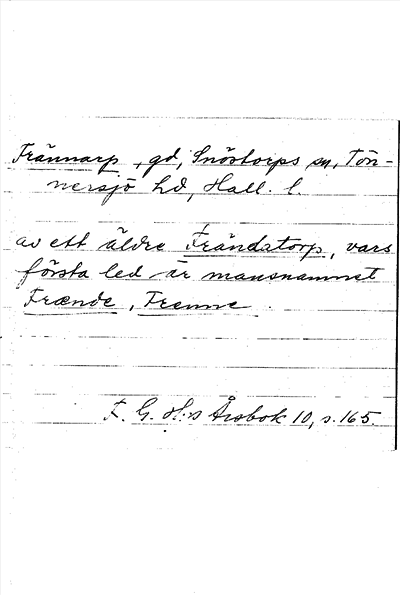 Frännarp, gd, Snöstorps sn, Tön-
nersjö hd, Hall. l.
av ett äldre Frändatorp, vars
första led är mansnamnet
Frænde, Frenne.
F. G. H:s Årsbok 10, s. 165.